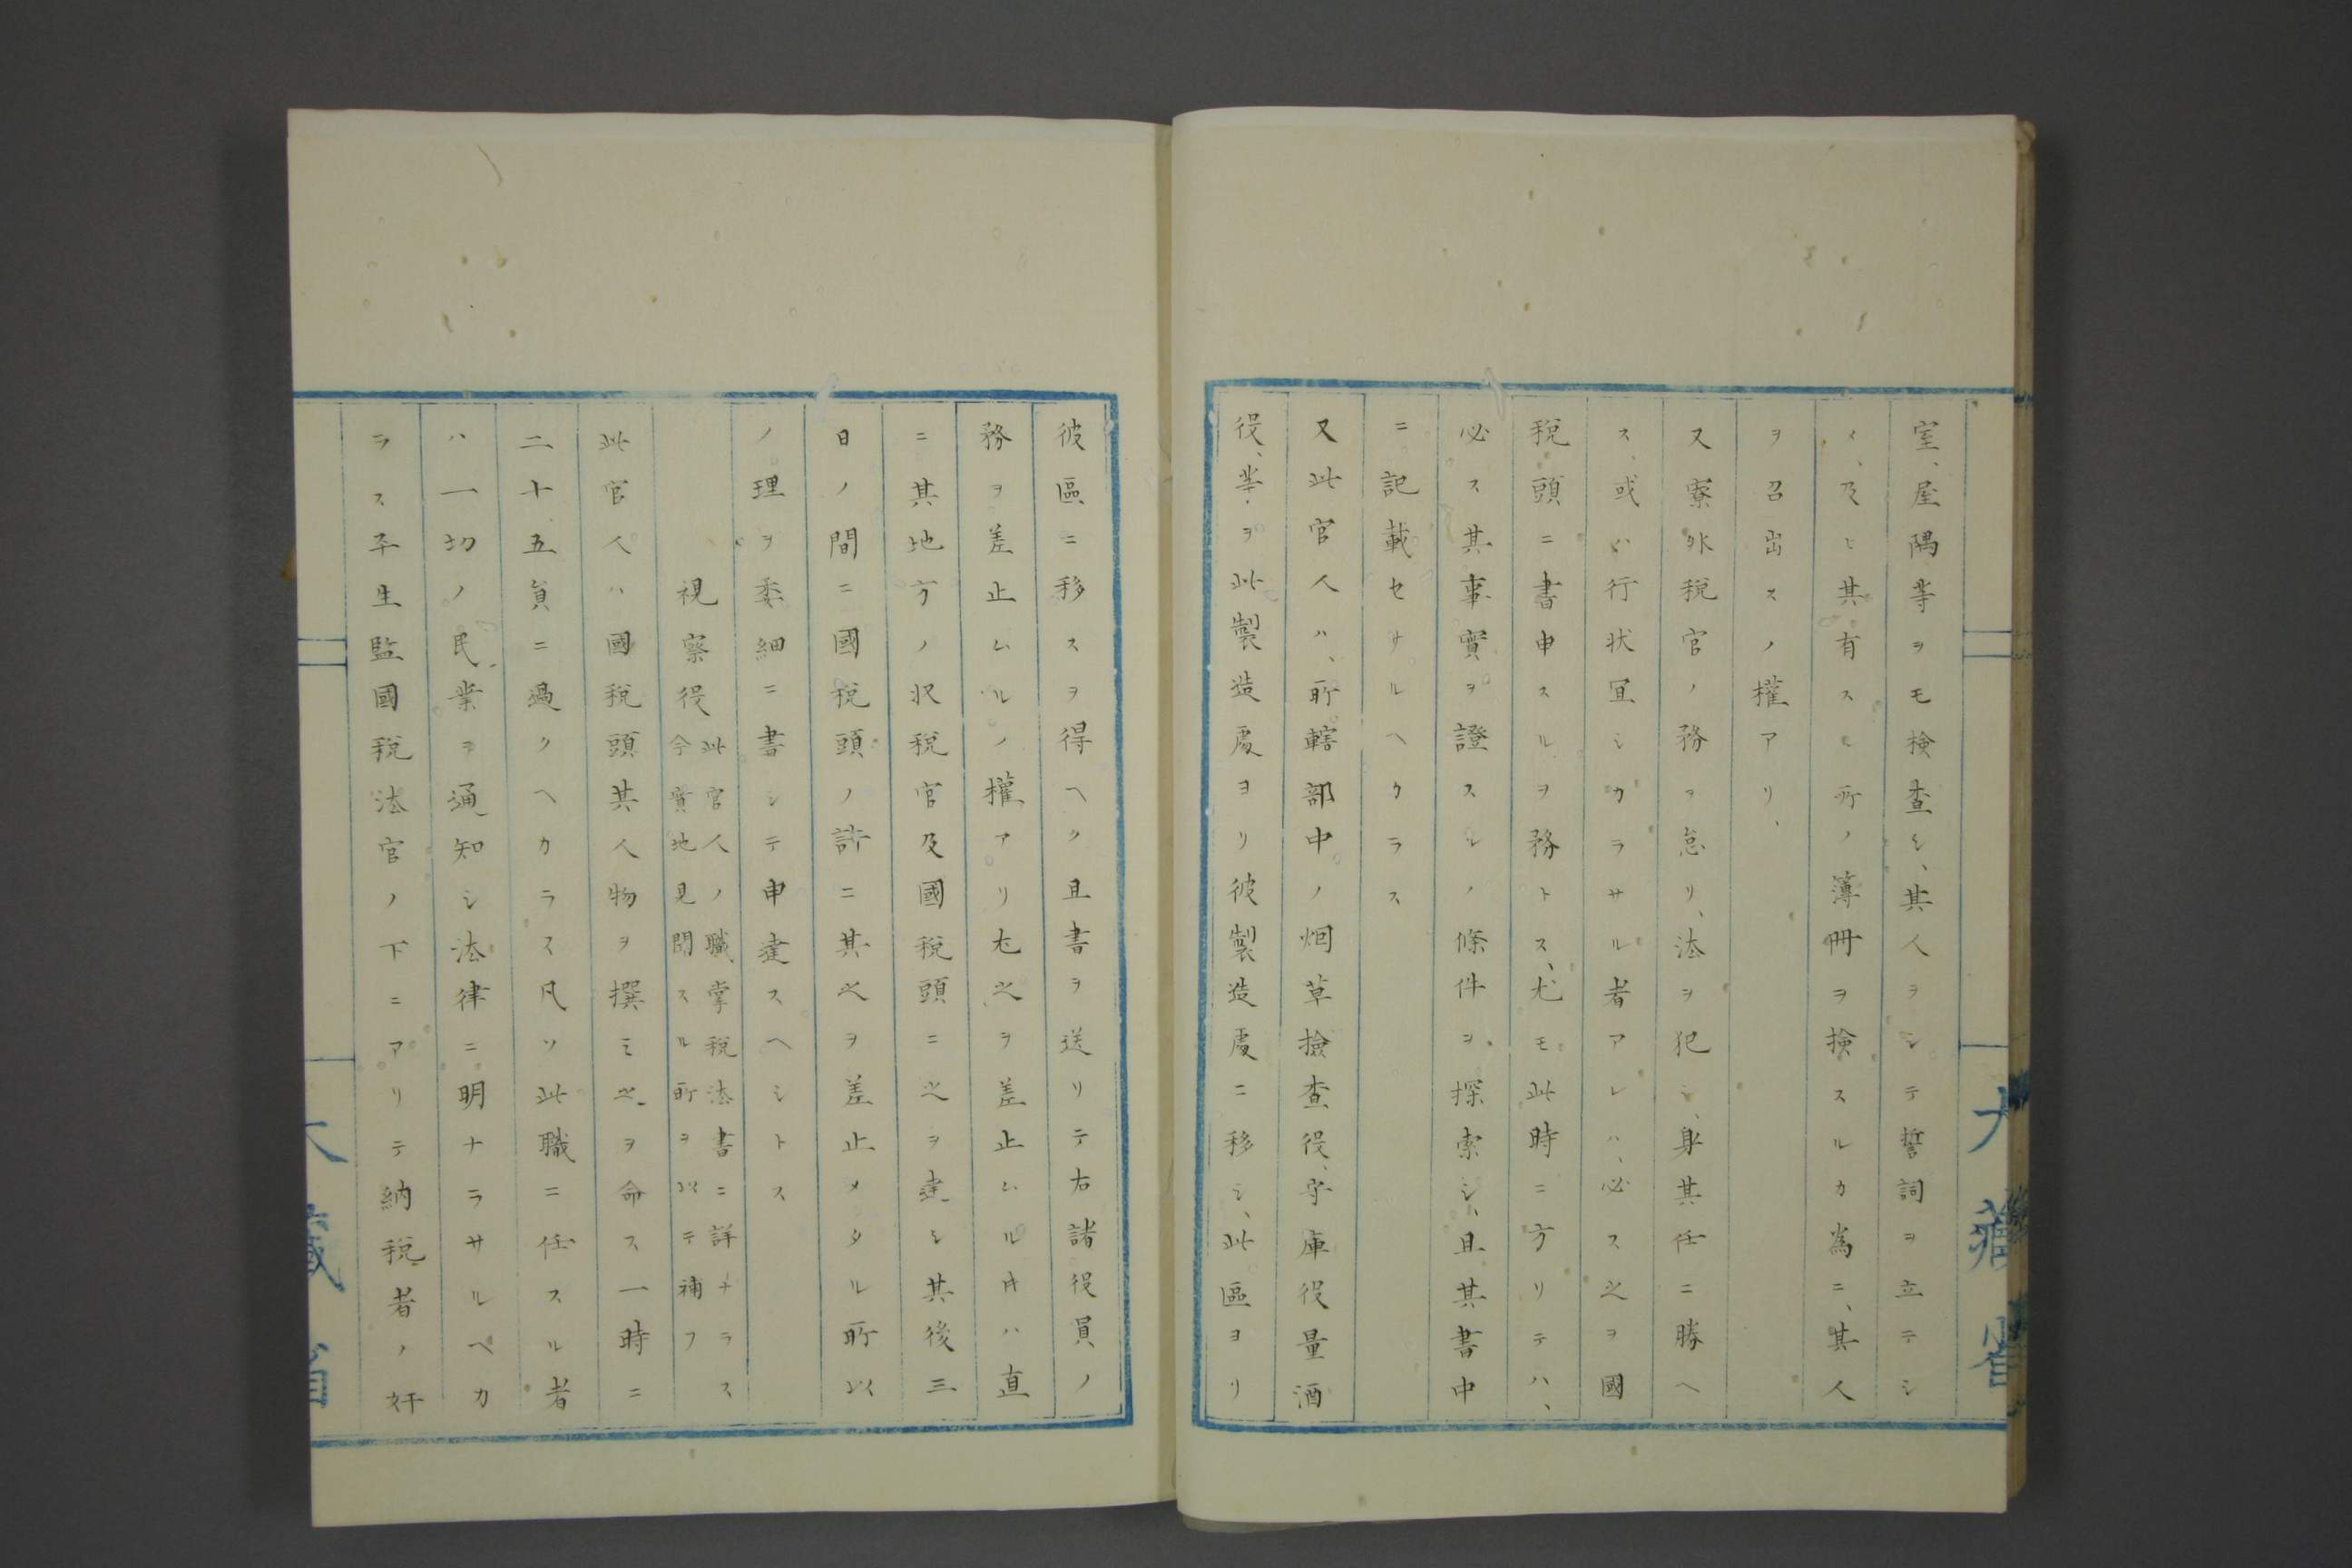 室、屋隅等ヲモ検査シ、其人ヲシテ誓詞ヲ立テシ
メ、及ヒ其有スル所ノ簿冊ヲ検スルカ為ニ、其人
ヲ召出スノ權アリ、
又寮外税官ノ務ヲ怠リ、法ヲ犯シ、身其任ニ勝ヘ
ス、或ハ行状冝シカラサル者アレハ、必ス之ヲ國
税頭ニ書申スルヲ務トス、尤モ此時ニ方リテハ、
必ス其事實ヲ證スルノ條件ヲ探索シ、且其書中
ニ記載セサルヘクラス
又此官人ハ、所轄部中ノ烟草撿査役、守庫役量酒
役、等ヲ此製造處ヨリ彼製造處ニ移シ、此區ヨリ
彼區ニ移スヲ得ヘク且書ヲ送リテ右諸役員ノ
務ヲ差止ムルノ權アリ尤之ヲ差止ムル時ハ直
ニ其地方ノ収税官及國税頭ニ之ヲ達シ其後三
日ノ間ニ國税頭ノ許ニ其之ヲ差止メタル所以
ノ理ヲ委細ニ書シテ申達スヘシトス
視察役 此官人ノ職掌税法書ニ詳ナラス
今實地見聞スル所ヲ以テ補フ
此官人ハ國税頭其人物ヲ撰ミ之ヲ命ス一時ニ
二十五員ニ過クヘカラス凡ソ此職ニ任スル者
ハ一切ノ民業ヲ通知シ法律ニ明ナラサルベカ
ラス平生監國税法官ノ下ニアリテ納税者ノ奸
大藏省
大藏省